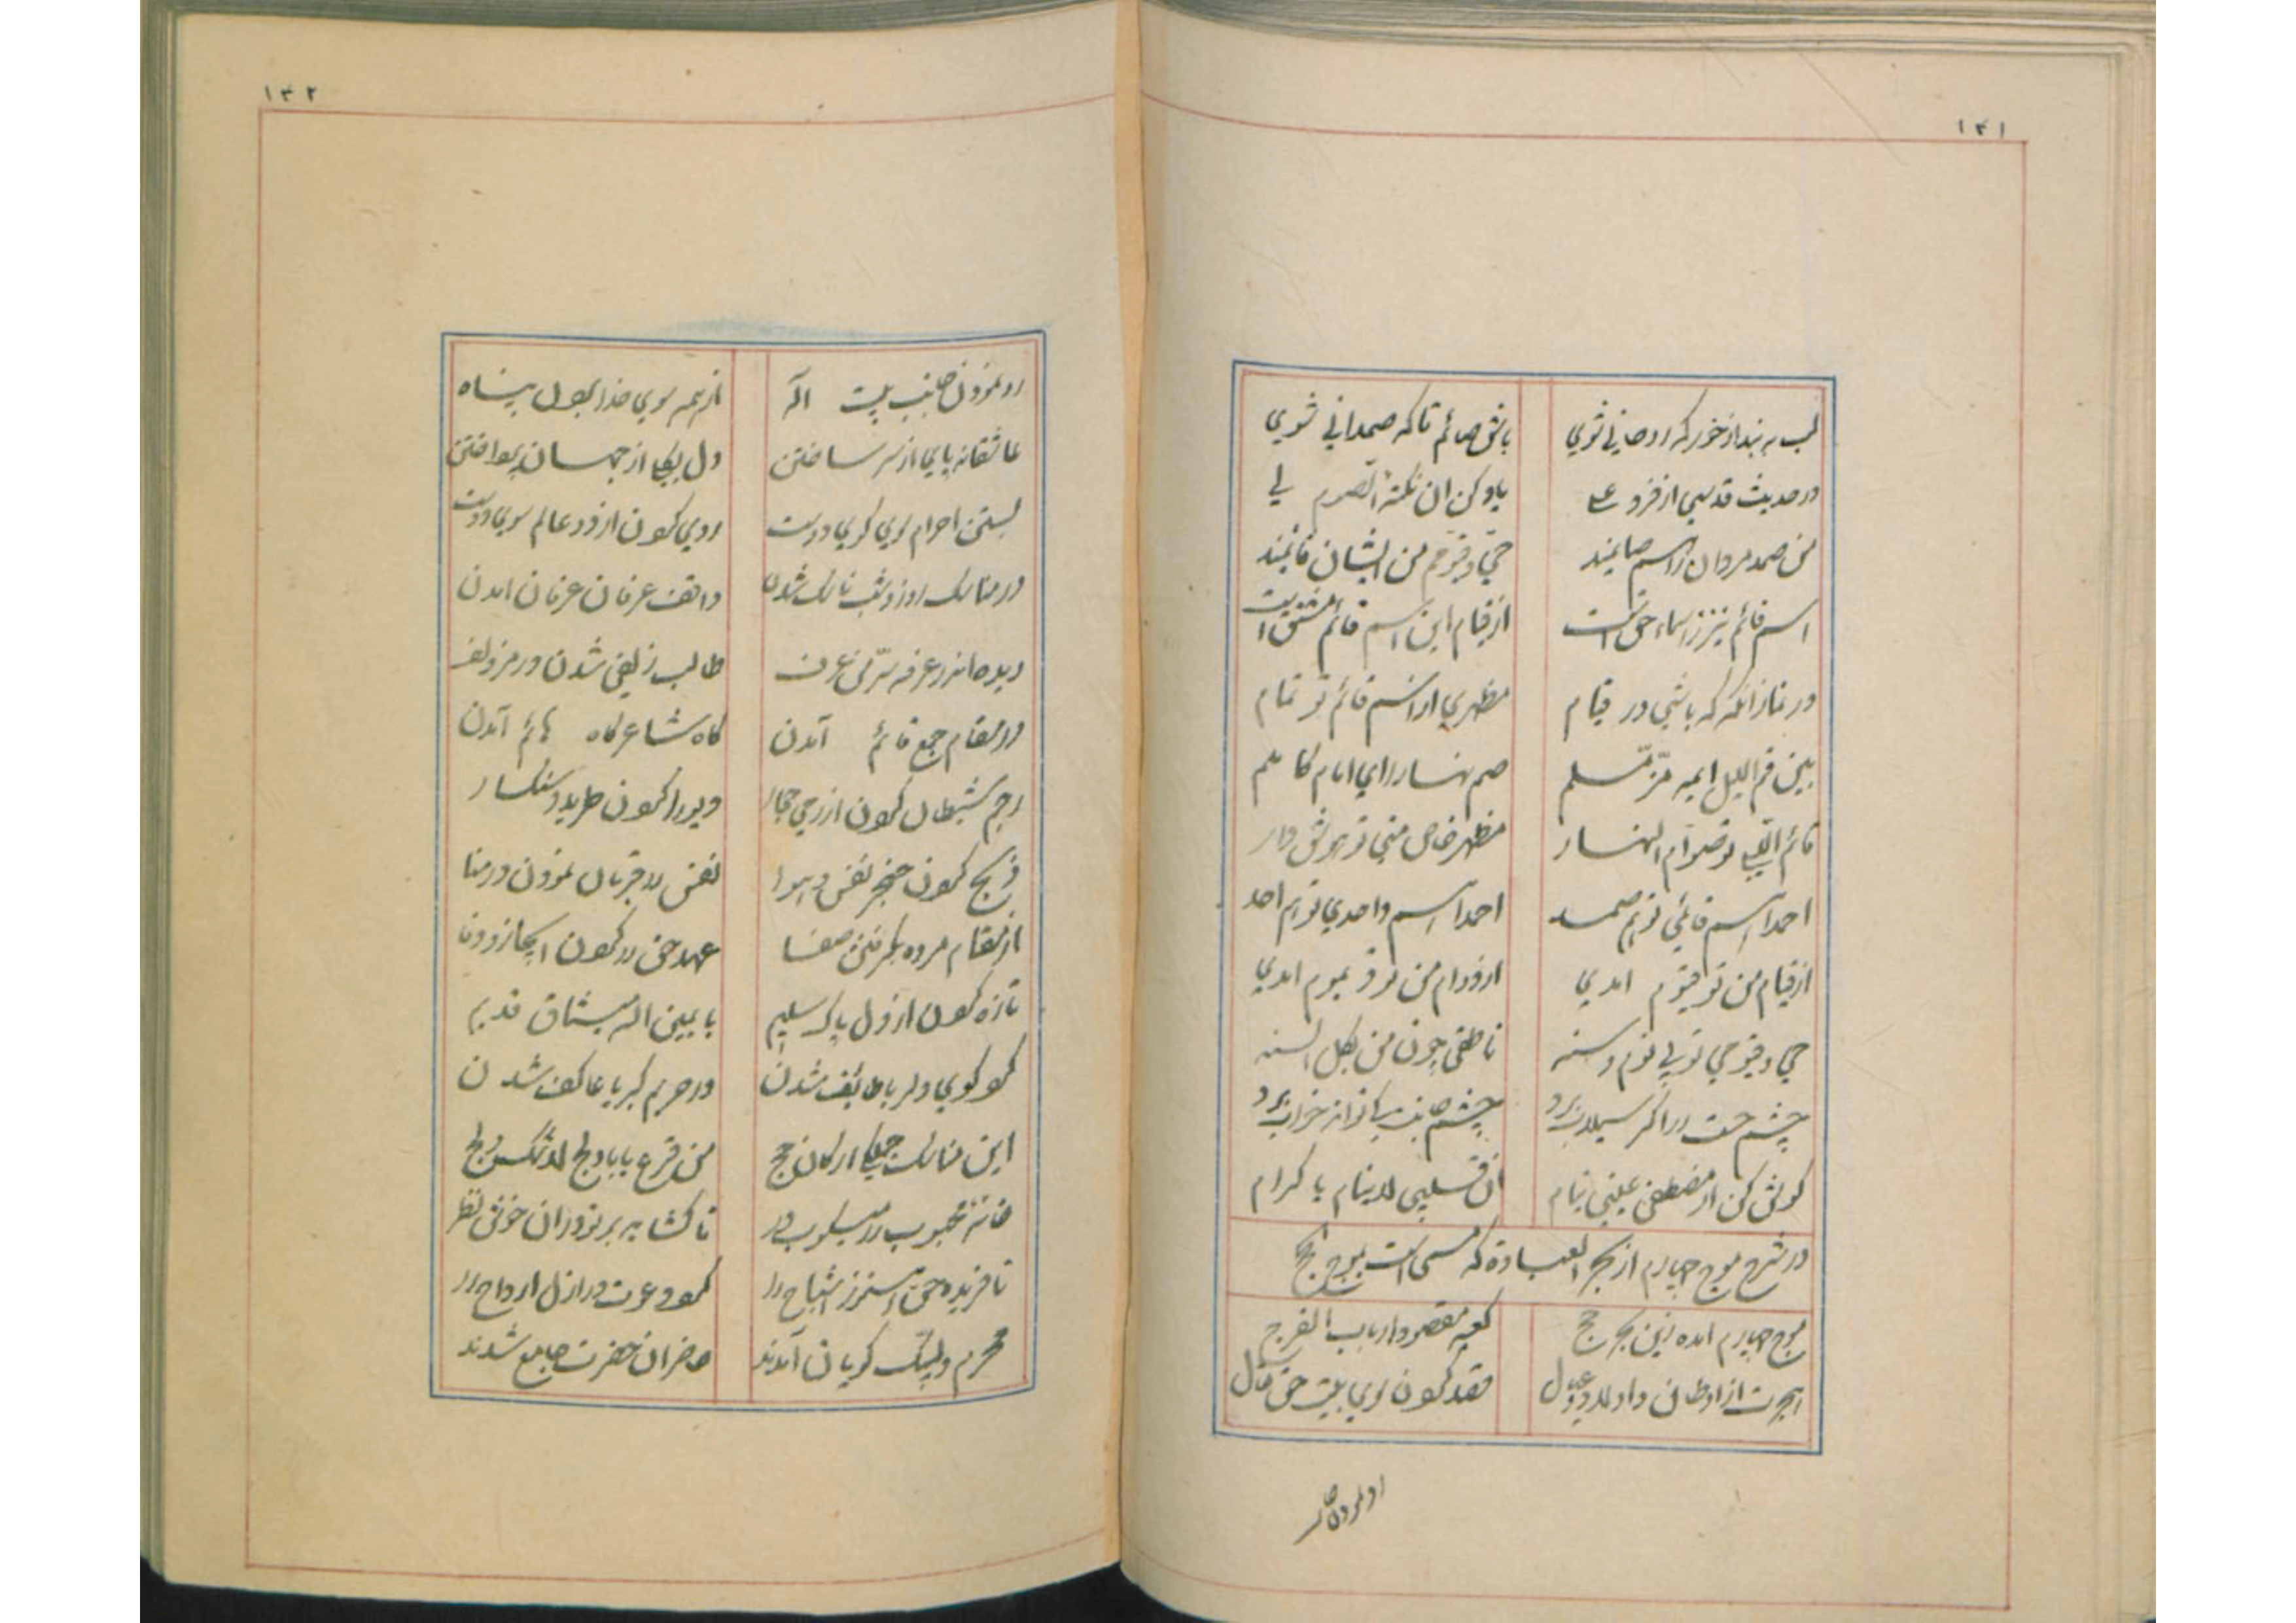 ۱۳۱
لب به بند از خور که روحانی شوی باش صائم تا که صمدانی شوی
در حدیث قدسی از فرد علی یاد کن ان نکته الصوم لی
من صمد مردان راسم صایمند حی و قیوم من ایشان قایمند
اسم قائم نیز ز اسماء حق است از قیام این اسم قائم مشتق است
در نماز انکه که باشی در قیام مظهری از اسم قائم تو تمام
بین قم اللیل ایه مزمل صم نهارا ای امام کاملم
قائم اللیل و صوام النهار مظهر خاص منی تو هوش دار
احد اسم قائمی تو هم صمد احد اسم واحدی تو هم احد
از قیام من تو قیوم امدی از دوام من تو دیموم امدی
حی و قیومی تو بی نوم و سنه ناطقی چون من بکل السنه
چشم حست را اکر سیلاب برد چشم جانت کی تواند خواب برد
کوش کن از مصطفی عینی تنام ان قلبی لا ینام یا کرام
در شرح موج چهارم از بحر العباده که مسمی است بموج حج
موج چهارم امده زین بحر حج کعبه مقصود ارباب الفرج
هجرت از اوطان و اولاد و عیال قصد کردن سوی بیت حق تعال
رو نمودن جا
۱۳۲
رو نمودن جانب بیت اله از همه سوی خدا بردن پناه
عاشقانه پای از سر ساختن دل بکلی از جهان پرداختن
بستن احرام سوی کوی دوست روی کردن از دو عالم سوی دوست
در مناسک روز و شب ناسک شدن واقف عرفان عرفان امدن
دیدن اندر عرفه سر من عرف طالب زلفی شدن در مزدلف
در مقام جمع قائم آمدن کاه شاعر کاه هائم آمدن
رجم شیطان کردن از رمی جمار دیو را کردن طرید و سنکسار
ذبح کردن خنجر نفس و هوا نفس را قربان نمودن در منا
از مقام مروه بکرفتن صفا عهد حق را کردن انجاز و وفا
تازه کردن از دل پاک سلیم با یمین اله میثاق قدیم
کرد کوی دلربا طائف شدن در حریم کبریا عاکف شدن
این مناسک جملکی ارکان حج من قرع بابا و لج لاشک ولج
خانه محبوب را میکوب در تا کشاید بر تو در ان خوش نظر
نافریده حق هنوز اشباح را کرد دعوت در ازل ارواح را
محرم و لبیک کویان آمدند حاضران حضرت جامع شدند